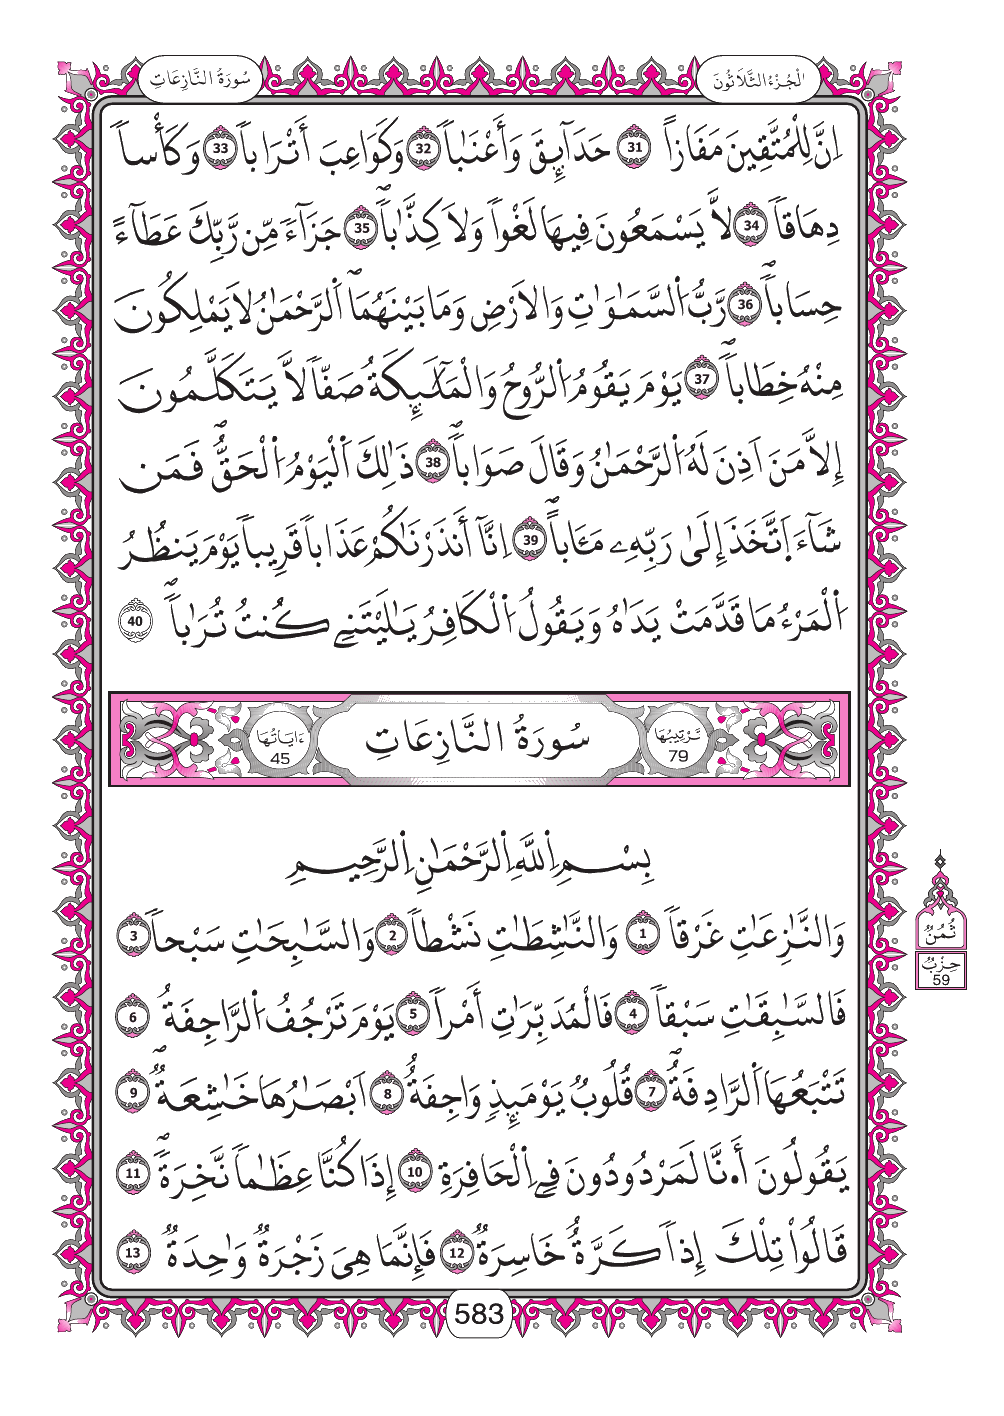 سُورَةُ النَّازِعَاتِ
الْجُزْءُ الثَّلَاثُونَ
اِنَّ لِلْمُتَّقِينَ مَفَازاً 31 حَدَآئِقَ وَأَعْنَٰباً 32 وَكَوَاعِبَ أَتْرَاباً 33 وَكَأْساً
دِهَاقاً 34 لاَّ يَسْمَعُونَ فِيهَا لَغْواً وَلاَ كِذَّٰباً 35 جَزَآءً مِّن رَّبِّكَ عَطَآءً
حِسَاباً 36 رَّبُّ اُ۬لسَّمَٰوَٰتِ وَالاَرْضِ وَمَا بَيْنَهُمَا اَ۬لرَّحْمَٰنُ لاَ يَمْلِكُونَ
مِنْهُ خِطَاباً 37 يَوْمَ يَقُومُ اُ۬لرُّوحُ وَالْمَلَٰٓئِكَةُ صَفّاً لاَّ يَتَكَلَّمُونَ
إِلاَّ مَنَ اَذِنَ لَهُ اُ۬لرَّحْمَٰنُ وَقَالَ صَوَاباً 38 ذَٰلِكَ اَ۬لْيَوْمُ اُ۬لْحَقُّ فَمَن
شَآءَ اَ۪تَّخَذَ إِلَىٰ رَبِّهِۦ مَـَٔاباً 39 اِنَّآ أَنذَرْنَٰكُمْ عَذَاباً قَرِيباً يَوْمَ يَنظُرُ
اُ۬لْمَرْءُ مَا قَدَّمَتْ يَدَٰهُ وَيَقُولُ اُ۬لْكَافِرُ يَٰلَيْتَنِے كُنتُ تُرَٰباً 40
تَرْتِيبُهَا 79
سُورَةُ النَّازِعَاتِ
ءَايَاتُهَا 45
بِسْمِ اِ۬للَّهِ اِ۬لرَّحْمَٰنِ اِ۬لرَّحِيمِ
وَالنَّٰزِعَٰتِ غَرْقاً 1 وَالنَّٰشِطَٰتِ نَشْطاً 2 وَالسَّٰبِحَٰتِ سَبْحاً 3
فَالسَّٰبِقَٰتِ سَبْقاً 4 فَالْمُدَبِّرَٰتِ أَمْراً 5 يَوْمَ تَرْجُفُ اُ۬لرَّاجِفَةُ 6
تَتْبَعُهَا اَ۬لرَّادِفَةُ 7 قُلُوبٌ يَوْمَئِذٍ وَاجِفَةٌ 8 اَبْصَٰرُهَا خَٰشِعَةٌ 9
يَقُولُونَ أَ.نَّا لَمَرْدُودُونَ فِے اِ۬لْحَافِرَةِ 10 إِذَا كُنَّا عِظَٰماً نَّخِرَةً 11
قَالُواْ تِلْكَ إِذاً كَرَّةٌ خَاسِرَةٌ 12 فَإِنَّمَا هِيَ زَجْرَةٌ وَٰحِدَةٌ 13
ثُمُنٌ
حِزْبٌ
59
583